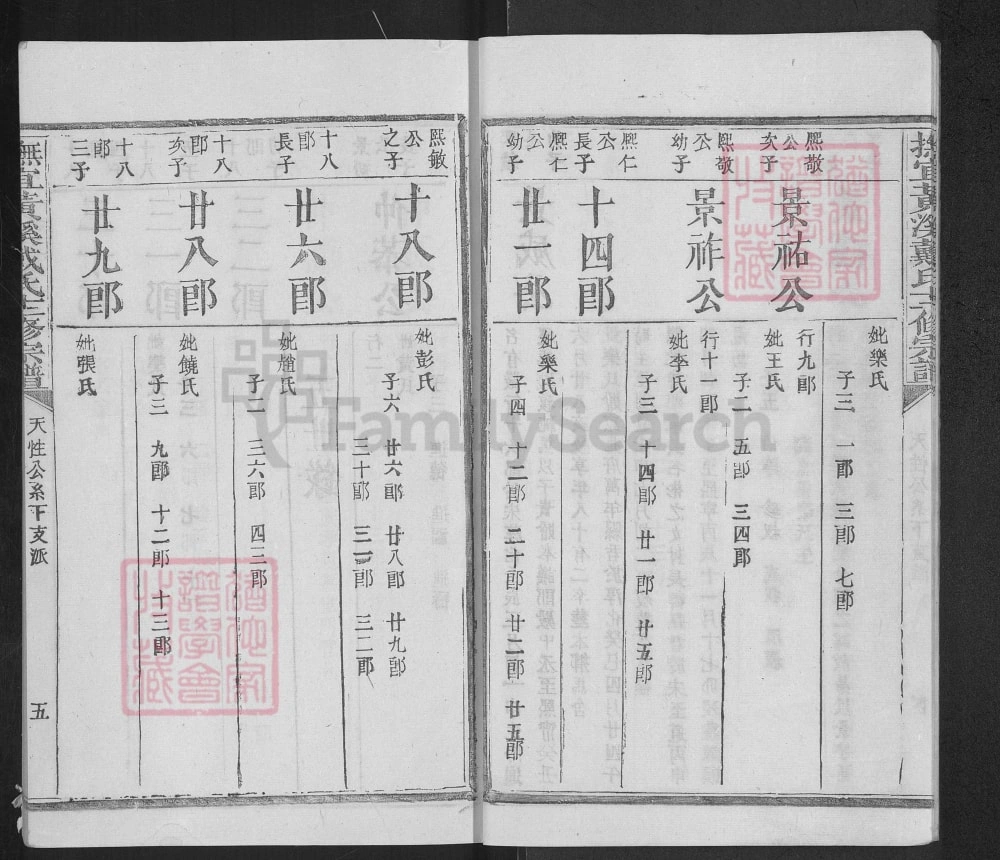 撫宜黃溪戴氏七修宗譜
熙敬
公
次子
景祐公
妣樂氏
子三 一郎 三郎 七郎
熙敬
公
幼子
景祚公
行九郎
妣王氏
子二 五郎 三四郎
行十一郎
妣李氏
子三 十四郎 廿一郎 廿五郎
熙仁
公
長子
十四郎
熙仁
公
幼子
廿一郎
妣樂氏
子四 十二郎 二十郎 廿二郎 廿五郎
熙敏
公
之子
十八郎
妣彭氏
子六 廿六郎 廿八郎 廿九郎
三十郎 三一郎 三二郎
十八
郎
長子
廿六郎
妣趙氏
子二 三六郎 四三郎
十八
郎
次子
廿八郎
妣饒氏
子三 九郎 十二郎 十三郎
十八
郎
三子
廿九郎
妣張氏
撫宜黃溪戴氏七修宗譜
天性公系下支派
五
FamilySearch